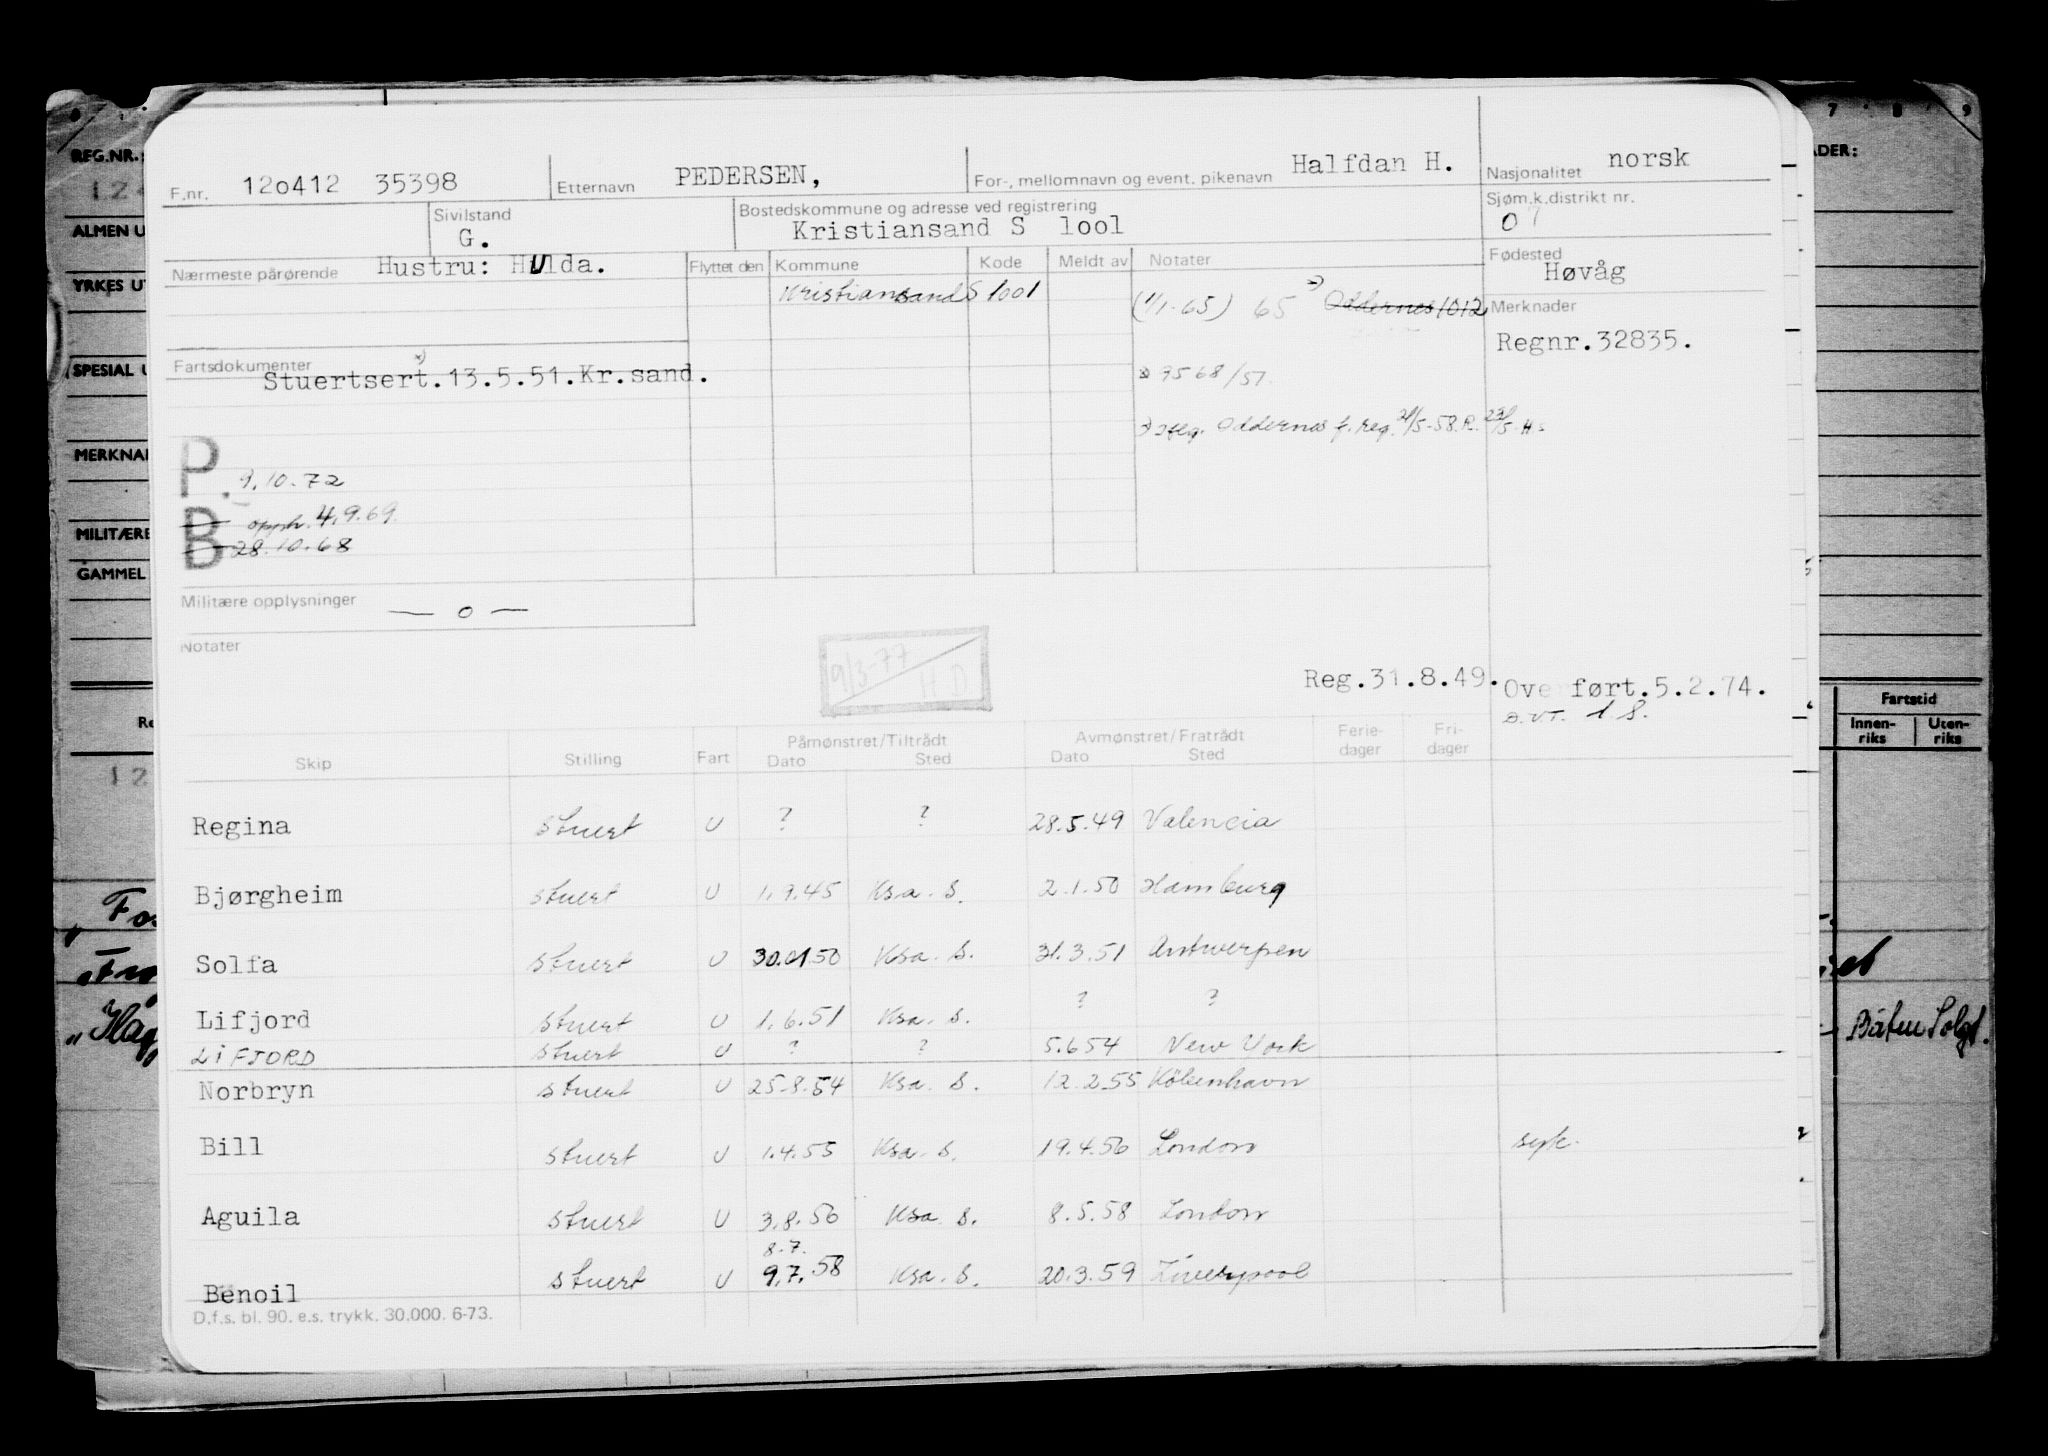 F.nr. 12o412 35398 Etternavn PEDERSEN, For-, mellomnavn og event. pikenavn Halfdan H. Nasjonalitet norsk
Sivilstand G. Bostedskommune og adresse ved registrering Kristiansand S lool Sjøm.k.distrikt nr. 07
Nærmeste pårørende Hustru: Hulda. Flyttet den Kommune Kode Meldt av Notater Fødested Høvåg
Kristiansand S 1001 (1/1-65) 65 Oddernes 1012 Merknader
Regnr.32835.
Fartsdokumenter Stuertsert.13.5.51.Kr.sand. 9568/51
Oddernes f. reg. 21/5-58.R. 23/5-H
P. 9.10.72
B opph. 4.9.69.
28.10.68
Militære opplysninger — o —
Notater
9/3-77 H D
Reg.31.8.49. Overført.5.2.74.
1 S.
Skip Stilling Fart Påmønstret/Tiltrådt Dato Sted Avmønstret/Fratrådt Dato Sted Ferie-dager Fri-dager
Regina Stuert U ? ? 28.5.49 Valencia
Bjørgheim Stuert U 1.9.45 Ksa. S. 2.1.50 Hamburg
Solfa Stuert U 30.01.50 Ksa. S. 31.3.51 Antwerpen
Lifjord Stuert U 1.6.51 Ksa. S. ? ?
LIFJORD Stuert U ? ? 5.6.54 New York
Norbryn Stuert U 25.8.54 Ksa. S. 12.2.55 København
Bill Stuert U 1.4.55 Ksa. S. 19.4.56 London syk.
Aguila Stuert U 3.8.56 Ksa S. 8.5.58 London
8.7.
Benoil Stuert U 9.7.58 Ksa. S. 20.3.59 Liverpool
D.f.s. bl. 90. e.s. trykk. 30.000. 6-73.
REG.NR.
ALMEN U
YRKES UT
SPECIAL U
MERKNAD
MILITÆRE
GAMMEL
7 8 9
ADER:
Fartstid
Innen-riks Uten-riks
Båten Solgt.